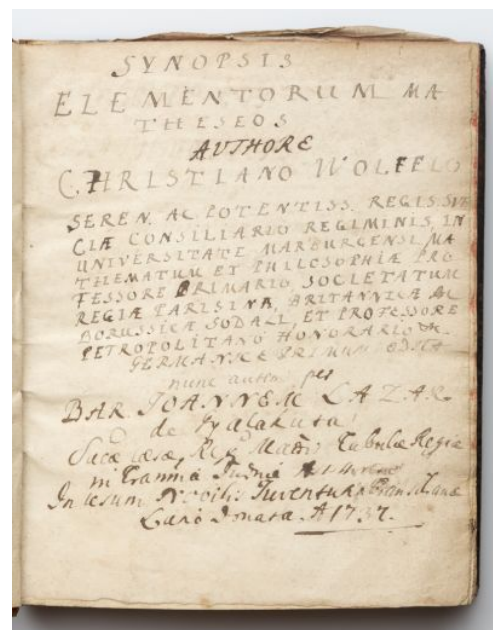 SYNOPSIS
ELEMENTORUM MA
THESEOS
AUTHORE
CHRISTIANO WOLFFIO
SEREN. AC POTENTISS. REGIS SVE
CIÆ CONSILIARIO REGIMINIS, IN
UNIVERSITATE MARBURGENSI MA
THEMATUM ET PHILOSOPHIÆ PRO
FESSORE PRIMARIO, SOCIETATUM
REGIÆ PARISINÆ, BRITANNICÆ AC
BORUSSICÆ SODALI, ET PROFESSORE
PETROPOLITANO HONORARIO
GERMANICE PRIMUM EDITA
nunc per
BAR. IOANNEM LAZAR
de Gyalakuta
Tabulæ Regiæ
In Usum Nobilis Juventutis
Donata. A 1737.